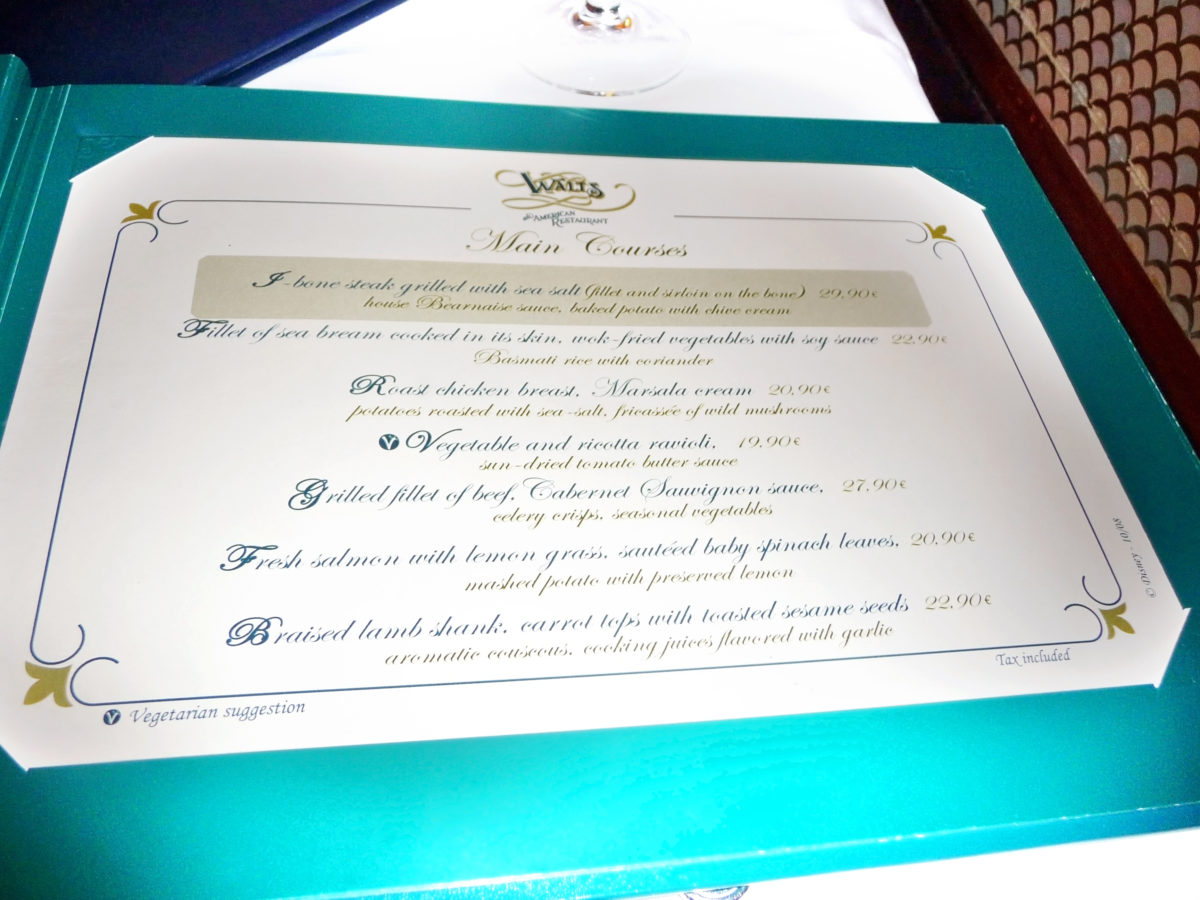 WALT'S
AN AMERICAN RESTAURANT
Main Courses
T-bone steak grilled with sea salt (fillet and sirloin on the bone) 29.90€
house Bearnaise sauce, baked potato with chive cream
Fillet of sea bream cooked in its skin, wok-fried vegetables with soy sauce 22.90€
Basmati rice with coriander
Roast chicken breast, Marsala cream 20.90€
potatoes roasted with sea-salt, fricassée of wild mushrooms
V Vegetable and ricotta ravioli, 19.90€
sun-dried tomato butter sauce
Grilled fillet of beef, Cabernet Sauvignon sauce, 27.90€
celery crisps, seasonal vegetables
Fresh salmon with lemon grass, sautéed baby spinach leaves, 20.90€
mashed potato with preserved lemon
Braised lamb shank, carrot tops with toasted sesame seeds 22.90€
aromatic couscous, cooking juices flavored with garlic
V Vegetarian suggestion
Tax included
© Disney - 10/08